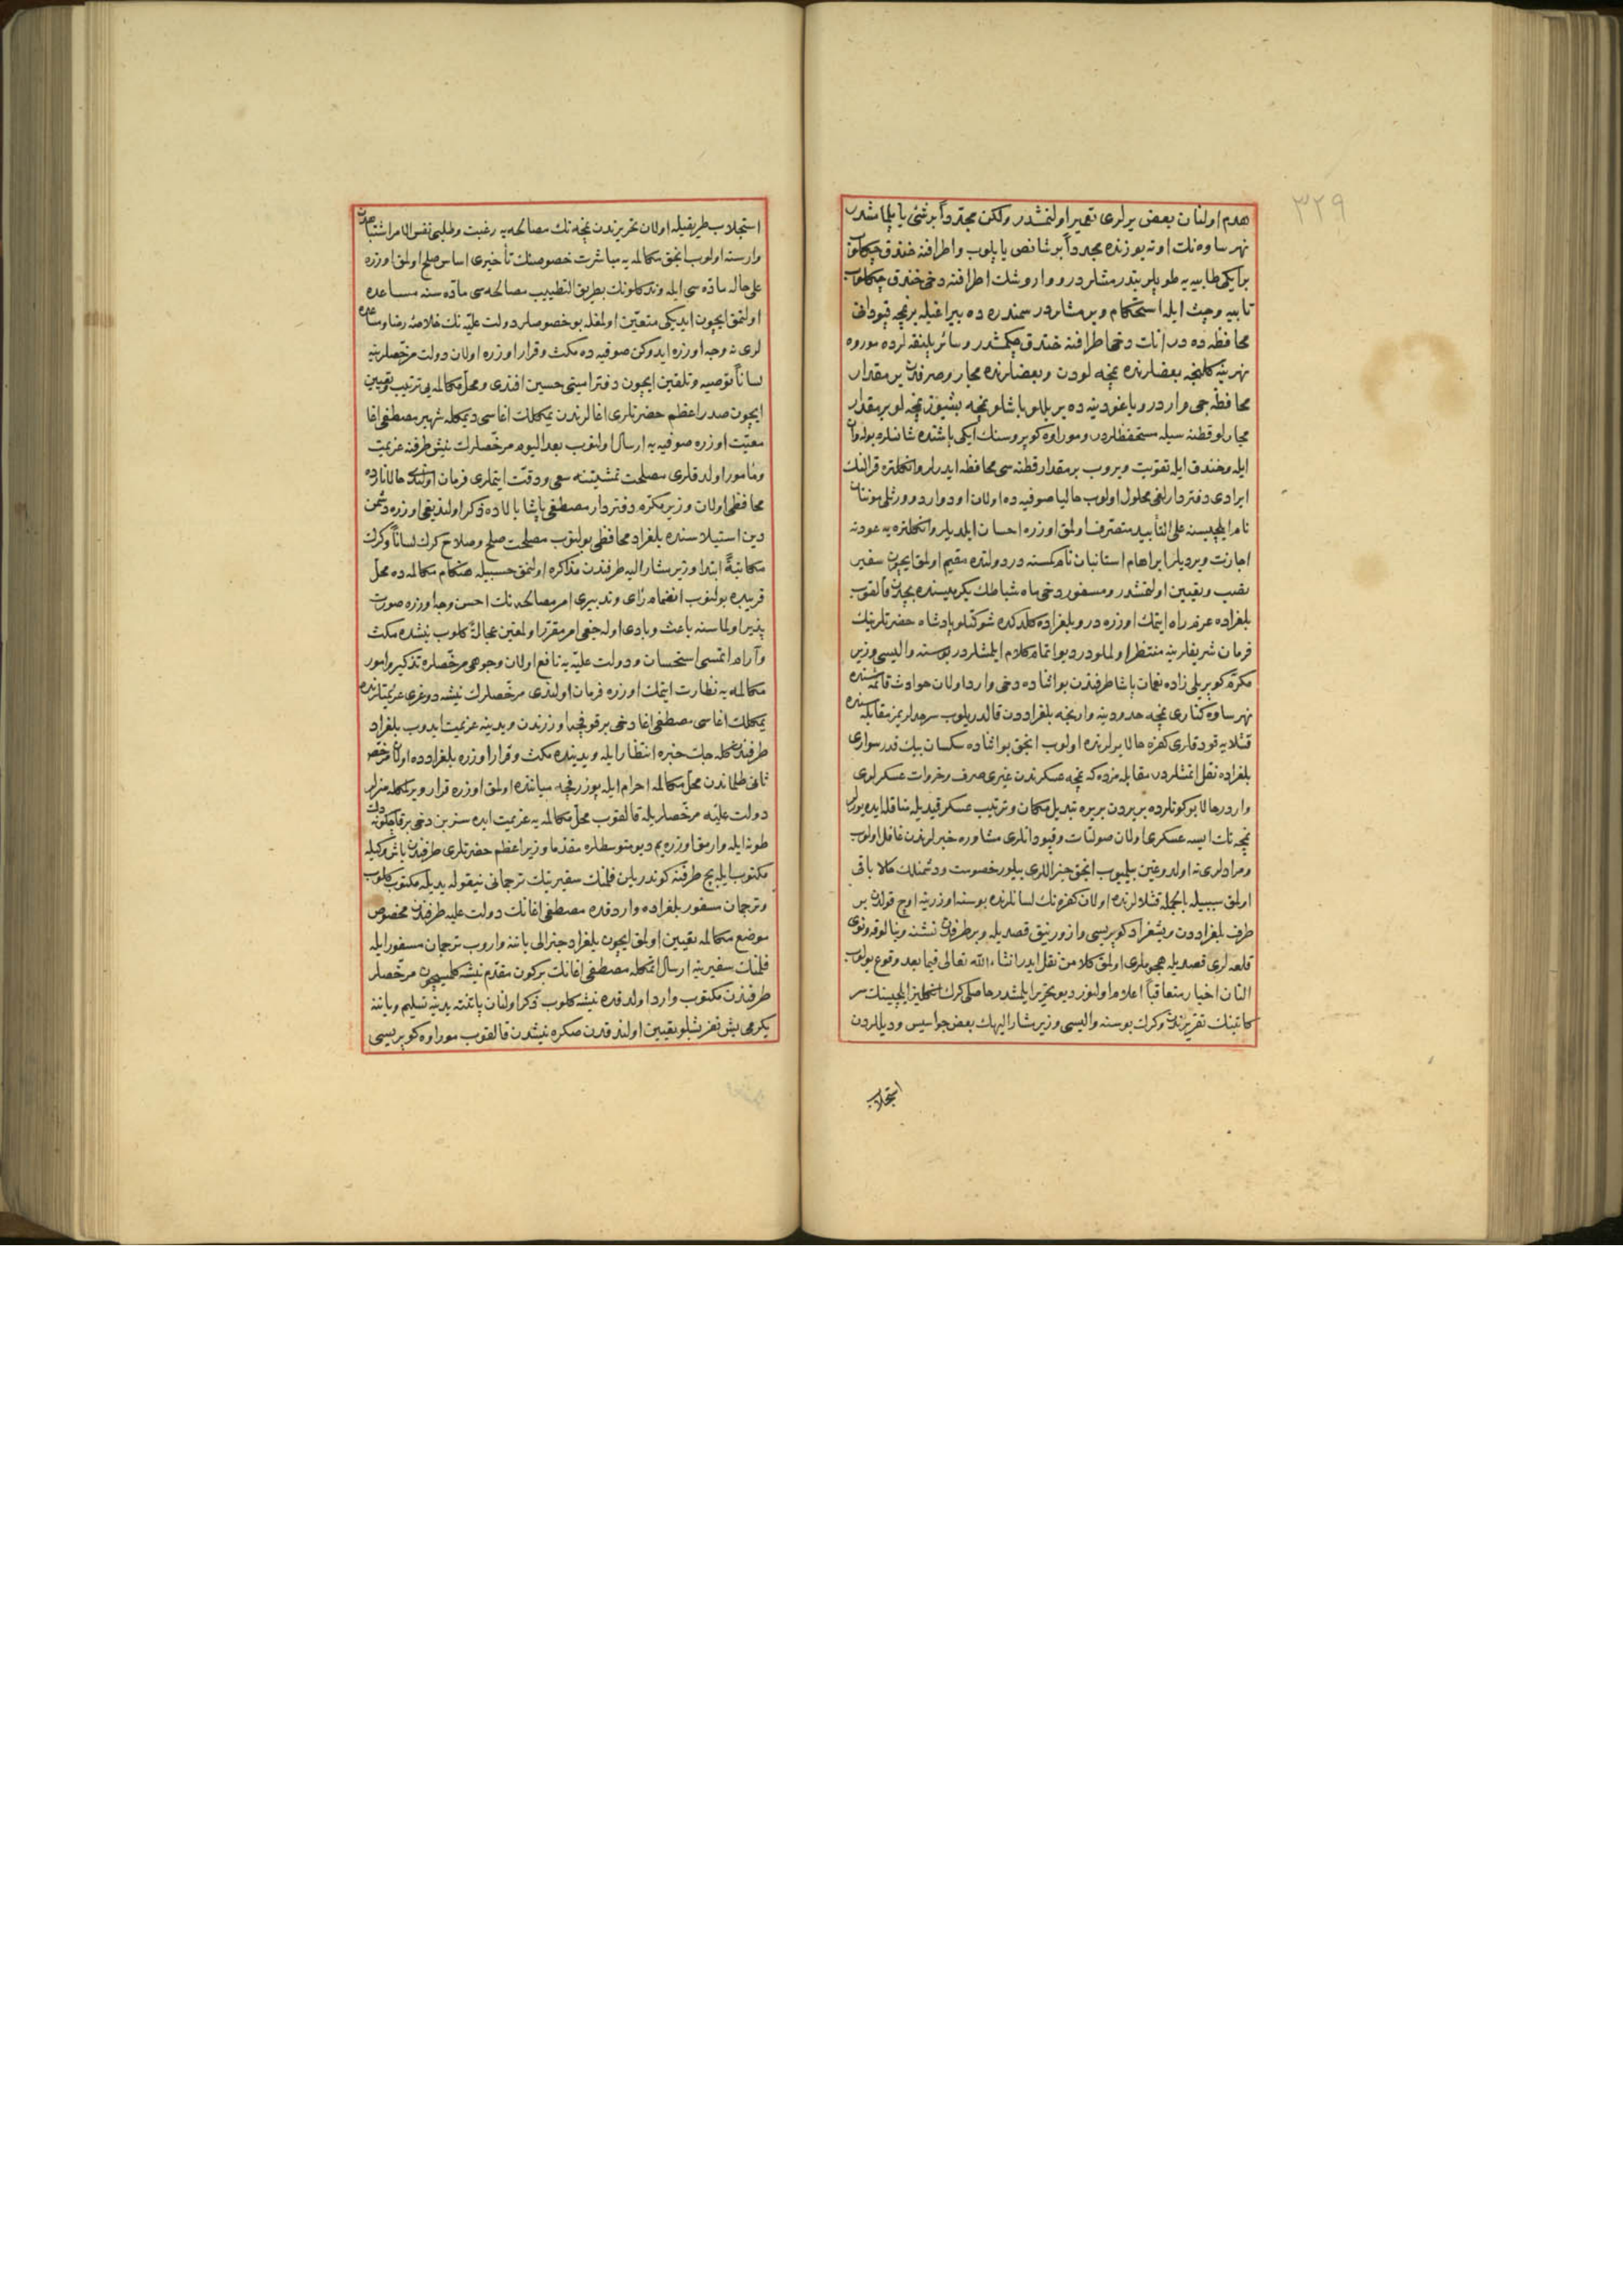 ٣٢٩
هدم اولنان بعض یرلری تعمیر اولنمشدر ولکن مجدداً برشئ یاپلمامشدر
نهر ساوه نك اوته یوزنده مجدداً بر شانص یاپلوب واطرافنه خندق
بر ایکی طابیه یه طوپلر واروشك اطرافنه دخی خندق
تابیه وچیت ایله استحکام ویرمشلردر سمندره ده بیراغیله برنمچه قپودانی
محافظه ده در انك دخی اطرافنه خندق چکمشدر وسائر پلنقه لرده موروه
نهرینه کلنجه بعضلرنده نمچه لودن وبعضلرنده مجار وصرفدن بر مقدار
محافظه جی واردر ده بر باشلو نمچه بشیوز نمچه لو بر مقدار
مجارلو قطنه سیله مستحفظلردر وموراوه کوپروسنك ایکی باشنده شانصلره
ایله وخندق ایله تقویت ویروب بر مقدار قطنه سی محافظه ایدرلر وانکلتره قرالنك
ایرادی دفتردارلغی محلول اولوب حالیا صوفیه ده اولان
نام ایلچیسنه علی التأبید متصرف اولمق اوزره احسان ایلدیلر وانکلتره یه عودته
اجازت ویردیلر ابراهام استانیان نام کمسنه در دولتده مقیم اولمق ایچون سفیر
نصب وتعیین اولنمشدر ومسفور دخی ماه شباطك یکرمیسنده بچدن قالقوب
بلغراده عزم راه ایتمك اوزره در وبلغراده کلدکده شوکتلو پادشاه حضرتلرینك
فرمان شریفلرینه منتظر اولملودر دیو اتمام کلام ایلمشلردر بوسنه والیسی وزیر
مکرم کوپریلی زاده نعمان پاشا طرفندن بو اثناده دخی وارد اولان حوادث قائمه سنده
نهر ساوه کناری نمچه حدودینه وارنجه بلغراددن قالدریلوب سرحدلریمز مقابله سنده
قشلایه قودقلری کفره حالا یرلرنده اولوب انجق بو اثناده سکسان بیك قدر سواری
بلغراده نقل اتمشلردر مقابله مزده که نمچه عسکرندن غیری صرف وخروات عسکرلری
واردر حالا بو کونلرده بریردن بریره تبدیل مکان وترتیب عسکر قیدیله
نمچه نك ایسه عسکری اولان صولتات وقپودانلری مشاوره خبرلرندن غافل اولوب
ومرادلری نه اولدوغین بیلمیوب انجق جنراللری بیلور خصومت ودشمنلك حالا باقی
اولمق سببیله بالجمله قشلالرنده اولان کفره نك لسانلرنده بوسنه اوزرینه اوچ قولدن بر
طرف بلغراددن ویشغراد کوپریسی وازورنیق قصدیله وبر طرفدن
قلعه لری قصدیله هجوملری اولمق کلامن نقل ایدر انشاءالله تعالی فیما بعد وقوع بولوب
النان اخبار متعاقباً اعلام اولنور دیو تحریر ایلمشدر حاصلی کرك انکلیز ایلچیسنك سر
کاتبنك تقریرندن وکرك بوسنه والیسی وزیر مشار الیهك بعض جواسیس ودیللردن
استجلاب
استجلاب طریقیله اولان تحریرندن نمچه نك مصالحه یه رغبت وطلبی نفس الامر اشتباهدن
وارسته اولوب انجق مکالمه یه مباشرت خصوصنك تأخیری اساس صلح اولمق اوزره
علی حاله ماده سی ایله وندکلونك بطریق التطییب مصالحه سی ماده سنه مساعده
اولنمق ایچون ایدیکی متعین اولمغله بو خصوصلر دولت علیه نك خلاصه رضا ومساعده
لری نه وجه اوزره ایدوکن صوفیه ده مکث وقرار اوزره اولان دولت مرخصلرینه
لساناً توصیه وتلقین ایچون دفتر امینی حسین افندی ومحل مکالمه یی ترتیب وتعیین
ایچون صدر اعظم حضرتلری اغالرندن یمکلك اغاسی دیمکله شهیر مصطفی اغا
معیت اوزره صوفیه یه ارسال اولنوب بعد الیوم مرخصلرك نیش طرفنه عزیمت
ومأمور اولدقلری مصلحت تمشیتنه سعی ودقت ایتملری فرمان اولندی حالا نیشده
محافظی اولان وزیر مکرم دفتردار مصطفی پاشا بالاده ذکر اولندیغی اوزره دشمن
دین استیلاسنده بلغراد محافظی بولنوب مصلحت صلح وصلاح کرك لساناً وکرك
مکاتبةً ابتدا وزیر مشار الیه طرفندن مذاکره اولنمق حسبیله هنکام مکالمه ده محل
قریبده بولنوب انضمام رأی وتدبیری امر مصالحه نك احسن وجه اوزره صورت
پذیر اولماسنه باعث وبادی اوله جغی امر مقرر اولمغین عجالةً کلوب نیشده مکث
وآرام اتمسی استحسان ودولت علیه یه نافع اولان وجوهی مرخصلره تذکیر وامور
مکالمه یه نظارت ایتمك اوزره فرمان اولندی مرخصلرك نیشه دوغری عزیمتلرنده
یمکلك اغاسی مصطفی اغا دخی برقوفچه اوزرندن ویدینه عزیمت ایدوب بلغراد
طرفندن کله جك خبره انتظار ایله ویدینده مکث وقرار اوزره بلغرادده اولان مرخص
ثانی طلماندن محل مکالمه احرام ایله پوزرفچه میاننده اولمق اوزره قرار ویرلمکله
دولت علیه مرخصلریله قالقوب محل مکالمه یه عزیمت ایده سز بن دخی برقاچ کونه دك
طونه ایله وارمق اوزره یم دیو متوسطلره مقدما وزیر اعظم حضرتلری طرفندن
مکتوب ایله بچ طرفنه کوندریلن فلمنك سفیرینك ترجمانی نیقوله یدیله مکتوب کلوب
وترجمان مسفور بلغراده واردقده مصطفی اغانك دولت علیه طرفندن مخصوص
موضع مکالمه تعیین اولمق ایچون بلغراد جنرالی یاننه واروب ترجمان مسفور ایله
فلمنك سفیرینه ارسال اتمکله مصطفی اغانك برکون مقدم نیشه کلمسیچون مرخصلر
طرفندن مکتوب وارد اولدقده نیشه کلوب ذکر اولنان پاتنته یدینه تسلیم ویاننه
یکرمی بش نفر بشلو تعیین اولندقدن صکره نیشدن قالقوب موراوه کوپریسی